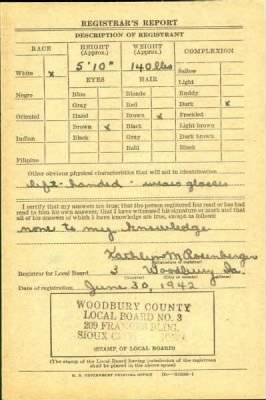 REGISTRAR'S REPORT
DESCRIPTION OF REGISTRANT
RACE HEIGHT (Approx.) WEIGHT (Approx.) COMPLEXION
5'10" 140 lbs
White x EYES HAIR Sallow
Light
Negro Blue Blonde Ruddy
Gray Red Dark x
Oriental Hazel Brown x Freckled
Brown x Black Light brown
Indian Black Gray Dark brown
Bald Black
Filipino
Other obvious physical characteristics that will aid in identification
left-handed - wears glasses
I certify that my answers are true; that the person registered has read or has had
read to him his own answers; that I have witnessed his signature or mark and that
all of his answers of which I have knowledge are true, except as follows:
none to my knowledge
Kathlyn M Rosenberger
(Signature of registrar)
Registrar for Local Board 3 Woodbury Ia.
(Number) (City or county) (State)
Date of registration June 30, 1942
WOODBURY COUNTY
LOCAL BOARD NO. 3
209 FRANCES BLDG.
SIOUX CITY
(STAMP OF LOCAL BOARD)
(The stamp of the Local Board having jurisdiction of the registrant
shall be placed in the above space)
U. S. GOVERNMENT PRINTING OFFICE